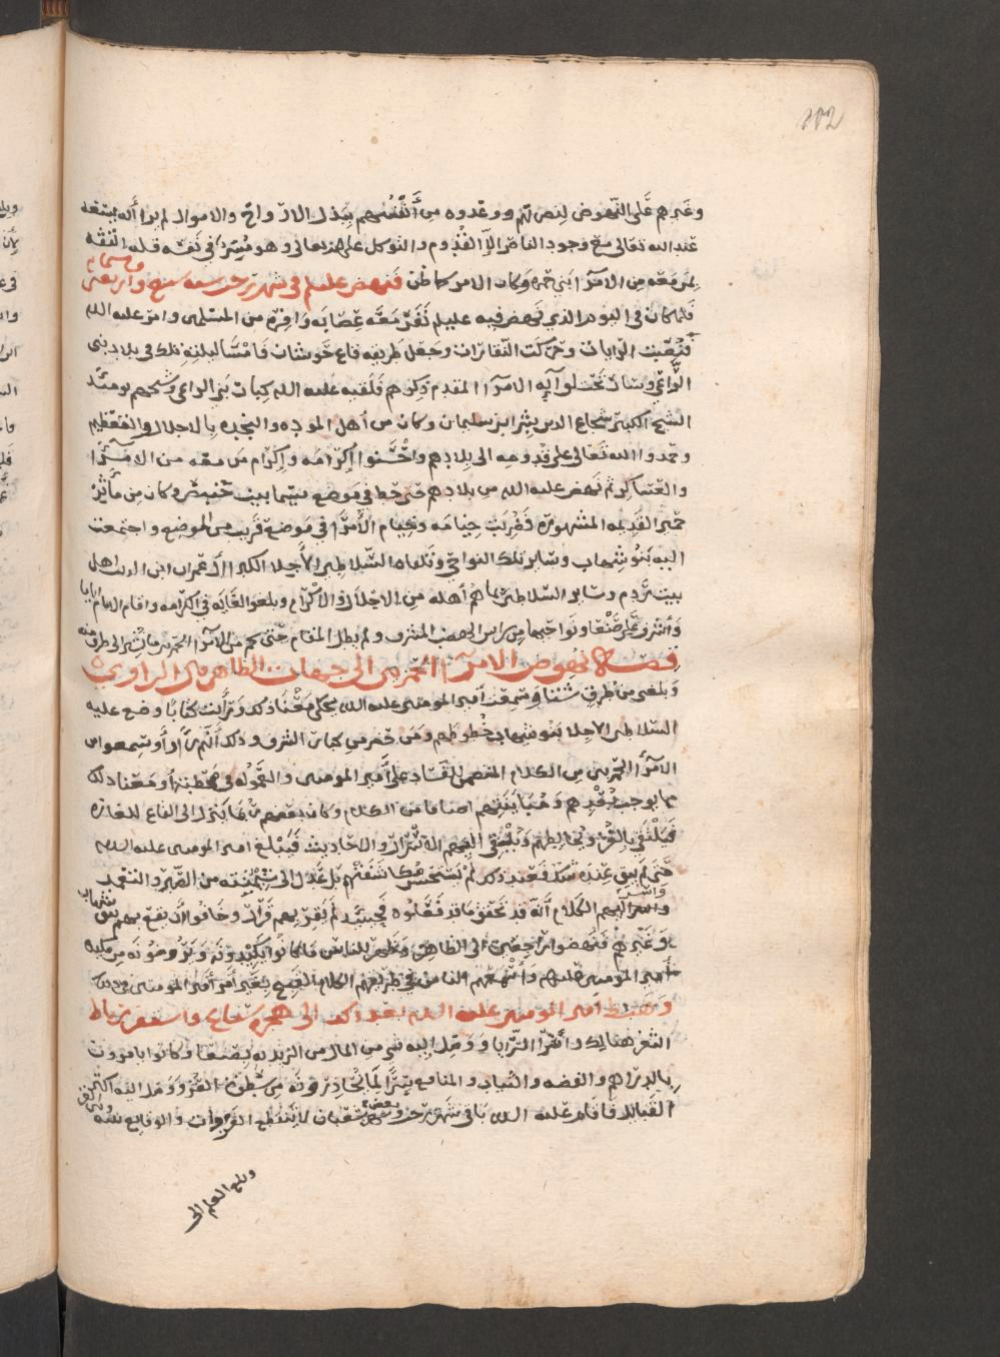 102
وغيرهم على النهوض لنصرتهم ووعدوه من أنفسهم ببذل الارواح والاموال لم يرا أنه يسعه
عند الله تعالى مع وجود الناصر الا القدوم والتوكل على الله تعالى وهو في نفقه قله النفقه
لمن معه من الامرآ ابني حمزه وكان الامر كما ظن فنهض عليلم في شهر رجب سنه سبع واربعين
وستمايه
فلما كان في اليوم الذي نهض فيه عليلم نفر معه عصابه وافره من المسلمين وامر عليه اللم
فنصبت الرايات وحركت النقارات وجعل طريقه قاع حوشان فامسا ليلته تلك في بلاد بني
الراعي وسار نحو آيه الامرآ المقدم ذكرهم فلقيه عليه اللم كبات بني الراعي وشيخهم يومئذ
الشيخ الكبير شجاع الدين بشر ابن سليمان وكان من أهل الموده والنجده بالاجلال والتعظيم
وحمدوا الله تعالى على قدومه الى بلادهم واحسنوا إكرامه وإكرام من معه من الامرآ
والعساكر ثم نهض عليه اللم من بلادهم حتى حط في موضع يسما بيت خنبش وكان من مآثر
حمير القديمه المشهوره فضربت خيامه وخيام الأمرآ في موضع قريب من الموضع واجتمعت
اليه بنو شهاب وساير تلك النواحي وتلقاه السلاطين الأجلا الكبرا آل عمران ابن اهل
بيت ردم وساير السلاطين بما هم أهله من الاجلال والاكرام وبلغوا الغايه في اكرامه واقام الامام اياما
وأشرف على صنعا ونواحيها من راس الحصن المشرف ولم يطل المقام حتى من الامرآ الحمزيين الى طرف منه
قصه نهوض الامرآ الحمزيين الى جهات الظاهر قال الراوي
وبلغني من طرف شتا وسمعت أمير المومنين عليه اللم يحكي معنا ذلك وقرات كتابا وضع عليه
السلاطين الاجلا بنو شهاب خطوطهم ومن حضر من كبار الشرف وذلك أنهم رأوا أو سمعوا من
الامرآ الحمزيين من الكلام المفضي الى الفساد على أمير المومنين والتحول في محطته أو معنا ذلك
ما يوجب وهيا بينهم اصنافا من الكلام وكان بعضهم ربما ينزل الى القاع للغاره
فيلتقي بالغز ويخالطهم ويلقي اليهم الاسرار والاحاديث فيبلغ امير المومنين عليه اللم
حتى لم يبق عنده شك فعند ذلك لم يستحسن مكاشفتهم بل عدل الى شيمته من الصبر والتغمد
واسر اليهم الكلام أنه قد تحقق ما قد فعلوه فحينئذ لم يقر بهم قرار وخافوا أن يقع بهم بنو شهاب
وغيرهم فنهضوا راجعين الى الظاهر وظهر للناس ما كانوا يكيدونه ويرومونه من مكيده
أمير المومنين عليلم وأتبعهم الناس في طريقهم الكلام القبيح بغير أمر أمير المومنين
وهبط أمير المومنين عليه اللم بعد ذلك الى هجره سناع واستقر رباط
الثغر هنالك وأنفرا السرايا ووصل اليه شي من المال من الزيديه بصنعا وكانوا يامرون
بالدراهم والفضه والثياب والمنافع سرا لما يحاذرونه من سطوه الغز ووصل اليه اكثر
القبايل فاقام عليه اللم باقي شهر رجب وبعض شعبان لا تنقطع الغزوات والوقايع بينه
وبلغ العلم الى